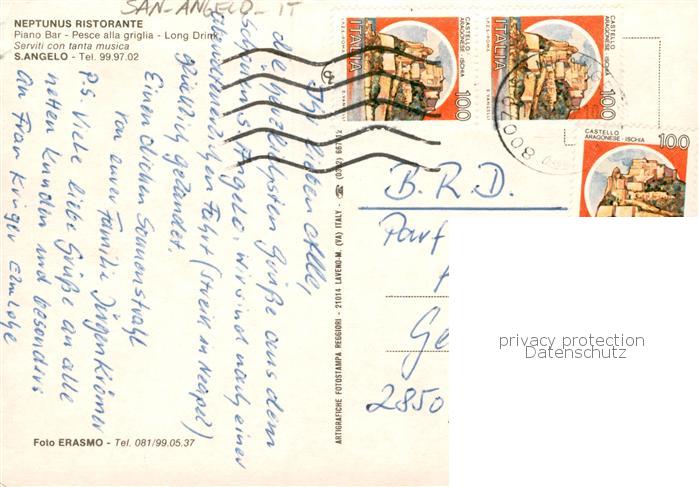 SAN-ANGELO-IT
NEPTUNUS RISTORANTE
Piano Bar - Pesce alla griglia - Long Drink
Serviti con tanta musica
S.ANGELO - Tel. 99.97.02
Ihr lieben Alle,
die herzlichsten Grüße aus dem
schönen S. Angelo. Wir sind nach einer
Fahrt (Streik in Neapel)
gelandet.
Einen Sonnenstrahl
von eurer Familie Jürgen Krömer
P.S. Viele liebe Grüße an alle
netten Kunden und besonders
an Frau Krüger
Foto ERASMO - Tel. 081/99.05.37
ARTIGRAFICHE FOTOSTAMPA REGGIORI - 21014 LAVENO-M. (VA) ITALY - ☎ (0332)
CASTELLO
ARAGONESE - ISCHIA
100
ITALIA
I.P.Z.S.-ROMA
CASTELLO
ARAGONESE - ISCHIA
100
ITALIA
I.P.Z.S.-ROMA
CASTELLO
ARAGONESE - ISCHIA
100
B.R.D.
Parf
Ge
2850
privacy protection
Datenschutz